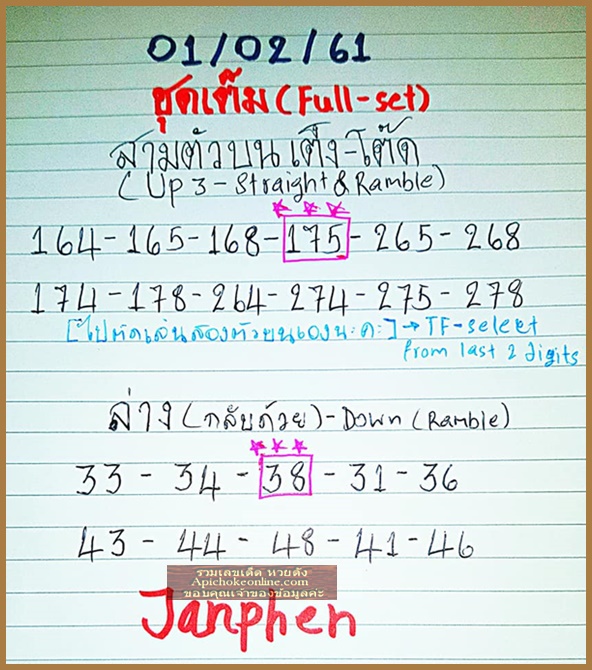 01/02/61
ชุดเต็ม (Full-set)
สามตัวบน เต็ง-โต๊ด
(Up 3 - Straight & Ramble)
164-165-168-175-265-268
174-178-264-274-275-278
[ไปตัดเล่นสองตัวบนเองนะคะ] → TF-select
from last 2 digits
ล่าง (กลับด้วย) - Down (Ramble)
33 - 34 - 38 - 31 - 36
43 - 44 - 48 - 41 - 46
รวมเลขเด็ด หวยดัง
Apichokeonline.com
ขอบคุณเจ้าของข้อมูลค่ะ
Janphen